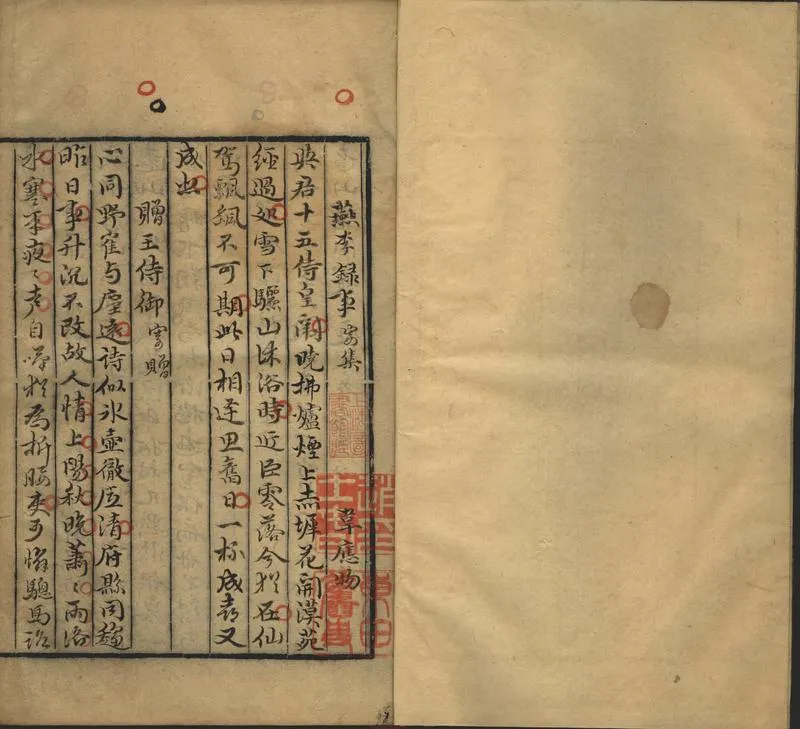 燕李録事 宴集 韋應物
與君十五侍皇闈曉拂爐煙上赤墀花開漢苑
經過処雪下驪山沐浴時近臣零落今猶在仙
駕飄颻不可期此日相逢思舊日一杯成喜又
成悲
贈王侍御 寄贈
心同野隺与塵遠詩似氷壺徹底清府縣同趨
昨日事升沉不改故人情上陽秋晚蕭〻雨洛
水寒来夜〻声自嘆猶為折腰吏可憐驄馬路